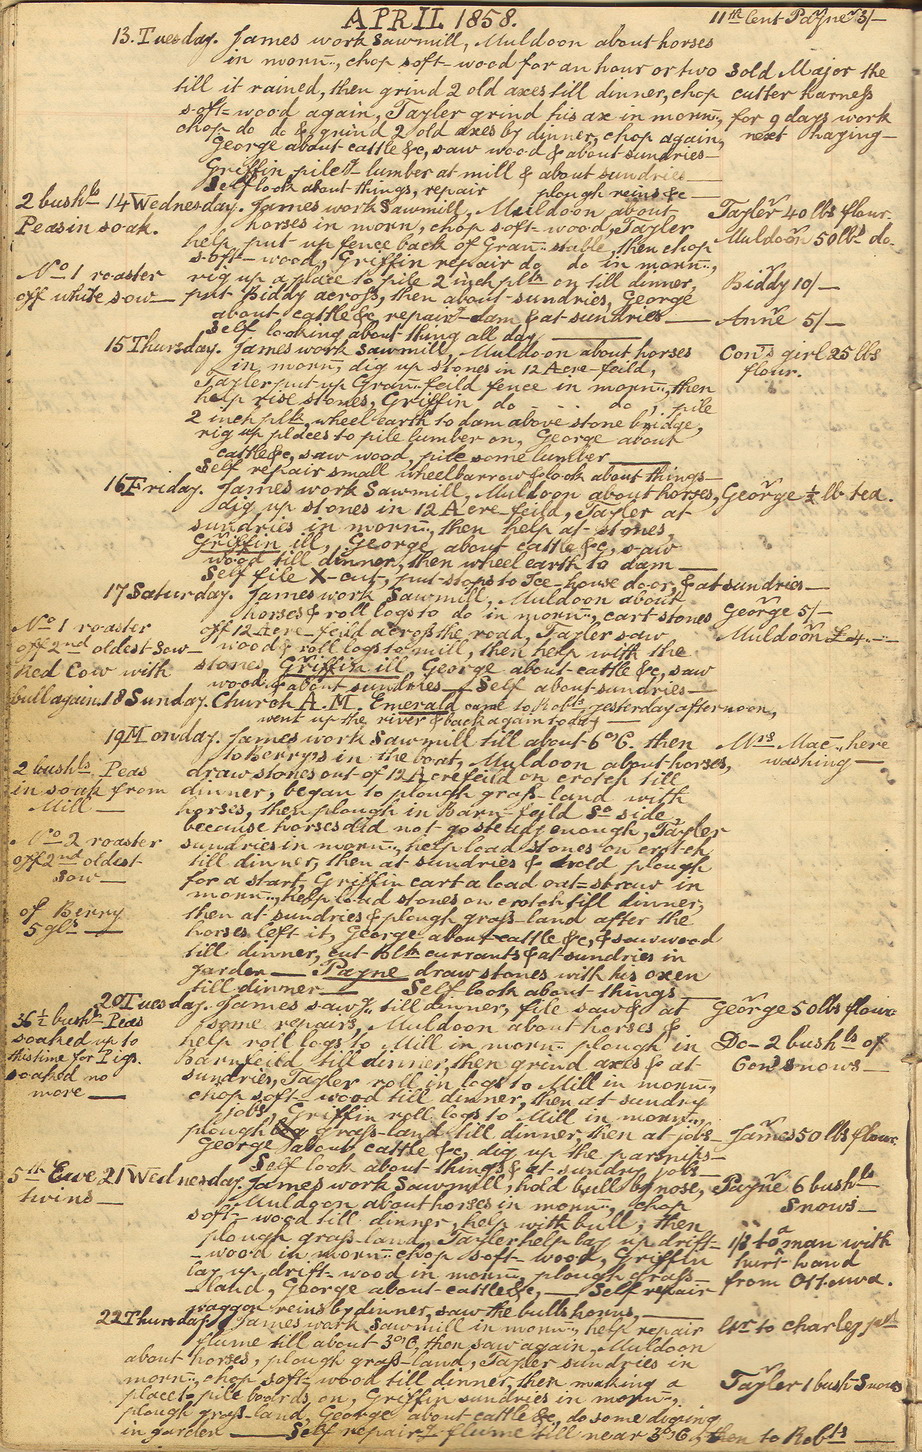 APRIL 1858.
11th lent Payne 3/-
13. Tuesday. James work Sawmill, Muldoon about horses
in morn., chop soft-wood for an hour or two
till it rained, then grind 2 old axes till dinner, chop
soft-wood again, Tayler grind his ax in morn.,
chop do do & grind 2 old axes by dinner, chop again,
George about cattle &c, saw wood & about sundries—
Griffin pileg lumber at mill & about sundries—
Self look about things, repair plough reins &c—
Sold Major the
cutter harness
for 9 days work
next haying—
2 bushls
Peas in soak.
No 1 roaster
off white sow—
14 Wednesday. James work Sawmill, Muldoon about
horses in morn, chop soft-wood, Tayler
help put up fence back of Gran. stable, then chop
soft-wood, Griffin repair do do in morn.,
rig up a place to pile 2 inch plk on till dinner,
put Biddy across, then about sundries, George
about cattle &c repairg dam & at sundries—
Self looking about thing all day—
Taylr 40 lbs flour.
Muldoon 50 lbs do.
Biddy 10/—
Anne 5/—
15 Thursday. James work Sawmill, Muldoon about horses
in morn, dig up stones in 12 Acre-feild,
Tayler put up Gran. feild fence in morn., then
help rise stones, Griffin do .. do ; pile
2 inch plk, wheel earth to dam above stone bridge,
rig up places to pile lumber on, George about
cattle &c, saw wood, pile some lumber—
Self repair small wheelbarrow & look about things—
Con's girl 25 lbs
flour.
16 Friday. James work Sawmill, Muldoon about horses,
dig up stones in 12 Acre-feild, Tayler at
sundries in morn., then help at stones,
Griffin ill, George about cattle &c, saw
wood till dinner, then wheel earth to dam—
Self file X-cut, put stops to Ice-house door, & at sundries—
George ½ lb tea.
17 Saturday. James work Sawmill, Muldoon about
horses & roll logs to do in morn., cart stones
off 12 Acre-feild across the road, Tayler saw
wood & roll logs to mill, then help with the
stones, Griffin ill, George about cattle &c, saw
wood & about sundries— Self about sundries—
George 5/—
Muldoon £4.—
No 1 roaster
off 2nd oldest Sow—
Red Cow with
bull again.
18 Sunday. Church A.M. Emerald came to Robts yesterday afternoon,
went up the river & back again today—
19 Monday. James work Sawmill till about 6 o'C. then
to Berry's in the boat, Muldoon about horses,
draw stones out of 12 Acre feild on crotch till
dinner, began to plough grass-land with
horses, then plough in Barn-feild So side
because horses did not go steady enough, Tayler
sundries in morn., help load stones on crotch
till dinner, then at sundries & hold plough
for a start, Griffin cart a load oat-straw in
morn., help load stones on crotch till dinner,
then at sundries & plough grass-land after the
horses left it, George about cattle &c, & saw wood
till dinner, cut blk currants & at sundries in
garden— Payne draw stones with his oxen
till dinner— Self look about things—
Mrs Mac. here
washing—
2 bushls Peas
in soak from
Mill—
No 2 roaster
off 2nd oldest
sow—
of Berry
5 gls—
20 Tuesday. James sawg. till dinner, file saw & at
some repairs, Muldoon about horses &
help roll logs to Mill in morn. plough in
Barnfeild till dinner, then grind axes & at
sundries, Tayler roll in logs to Mill in morn.,
chop soft-wood till dinner, then at sundry
jobs, Griffin roll logs to Mill in morn.,
plough grass-land till dinner, then at jobs—
George about cattle &c, dig up the parsnips—
Self look about things & at sundry jobs—
George 50 lbs flour
Do— 2 bushls of
Con's snows—
James 50 lbs flour.
36½ bushls Peas
soaked up to
this time for Pigs.
soaked no
more—
5th Ewe
twins—
21 Wednesday. James work Sawmill, hold bull by nose,
Muldoon about horses in morn., chop
soft-wood till dinner, help with bull, then
plough grass-land, Tayler help lay up drift-
-wood in morn. chop soft-wood, Griffin
lay up drift-wood in morn., plough grass-
-land, George about cattle &c,— Self repair
waggon reins by dinner, saw the bulls horns,—
Payne 6 bushls
Snows—
1/3 to a man with
hurt hand
from Ottawa.
22 Thursday. James work Sawmill in morn., help repair
flume till about 3 o'C, then saw again, Muldoon
about horses, plough grass-land, Tayler sundries in
morn., chop soft-wood till dinner, then making a
place to pile boards on, Griffin sundries in morn.,
plough grass-land, George about cattle &c, do some diging
in garden— Self repairg flume till near 3 o'C, then to Robts—
to Charley
Tayler 1 bush Snows